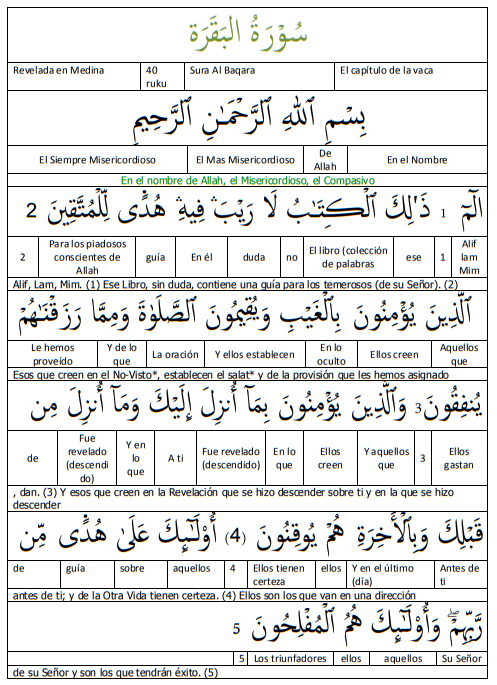 سُوْرَةُ البَقَرَة
Revelada en Medina 40 ruku Sura Al Baqara El capítulo de la vaca
بِسْمِ ٱللَّهِ ٱلرَّحْمَـٰنِ ٱلرَّحِيمِ
El Siempre Misericordioso El Mas Misericordioso De Allah En el Nombre
En el nombre de Allah, el Misericordioso, el Compasivo
الٓمٓ 1 ذَٰلِكَ ٱلْكِتَـٰبُ لَا رَيْبَ ۛ فِيهِ ۛ هُدًى لِّلْمُتَّقِينَ 2
2 Para los piadosos conscientes de Allah guía En él duda no El libro (colección de palabras ese 1 Alif lam Mim
Alif, Lam, Mim. (1) Ese Libro, sin duda, contiene una guía para los temerosos (de su Señor). (2)
ٱلَّذِينَ يُؤْمِنُونَ بِٱلْغَيْبِ وَيُقِيمُونَ ٱلصَّلَوٰةَ وَمِمَّا رَزَقْنَـٰهُمْ
Le hemos proveído Y de lo que La oración Y ellos establecen En lo oculto Ellos creen Aquellos que
Esos que creen en el No-Visto*, establecen el salat* y de la provisión que les hemos asignado
يُنفِقُونَ 3 وَٱلَّذِينَ يُؤْمِنُونَ بِمَآ أُنزِلَ إِلَيْكَ وَمَآ أُنزِلَ مِن
de Fue revelado (descendi do) Y en lo que A ti Fue revelado (descendido) En lo que Ellos creen Y aquellos que 3 Ellos gastan
, dan. (3) Y esos que creen en la Revelación que se hizo descender sobre ti y en la que se hizo
descender
قَبْلِكَ وَبِٱلْأَخِرَةِ هُمْ يُوقِنُونَ (4) أُوْلَـٰٓئِكَ عَلَىٰ هُدًى مِّن
de guía sobre aquellos 4 Ellos tienen certeza ellos Y en el último (día) Antes de ti
antes de ti; y de la Otra Vida tienen certeza. (4) Ellos son los que van en una dirección
رَّبِّهِمْ ۖ وَأُوْلَـٰٓئِكَ هُمُ ٱلْمُفْلِحُونَ 5
5 Los triunfadores ellos aquellos Su Señor
de su Señor y son los que tendrán éxito. (5)